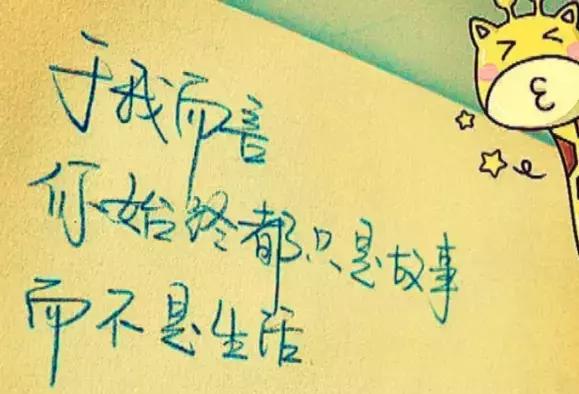 于我而言
你始终都只是故事
而不是生活